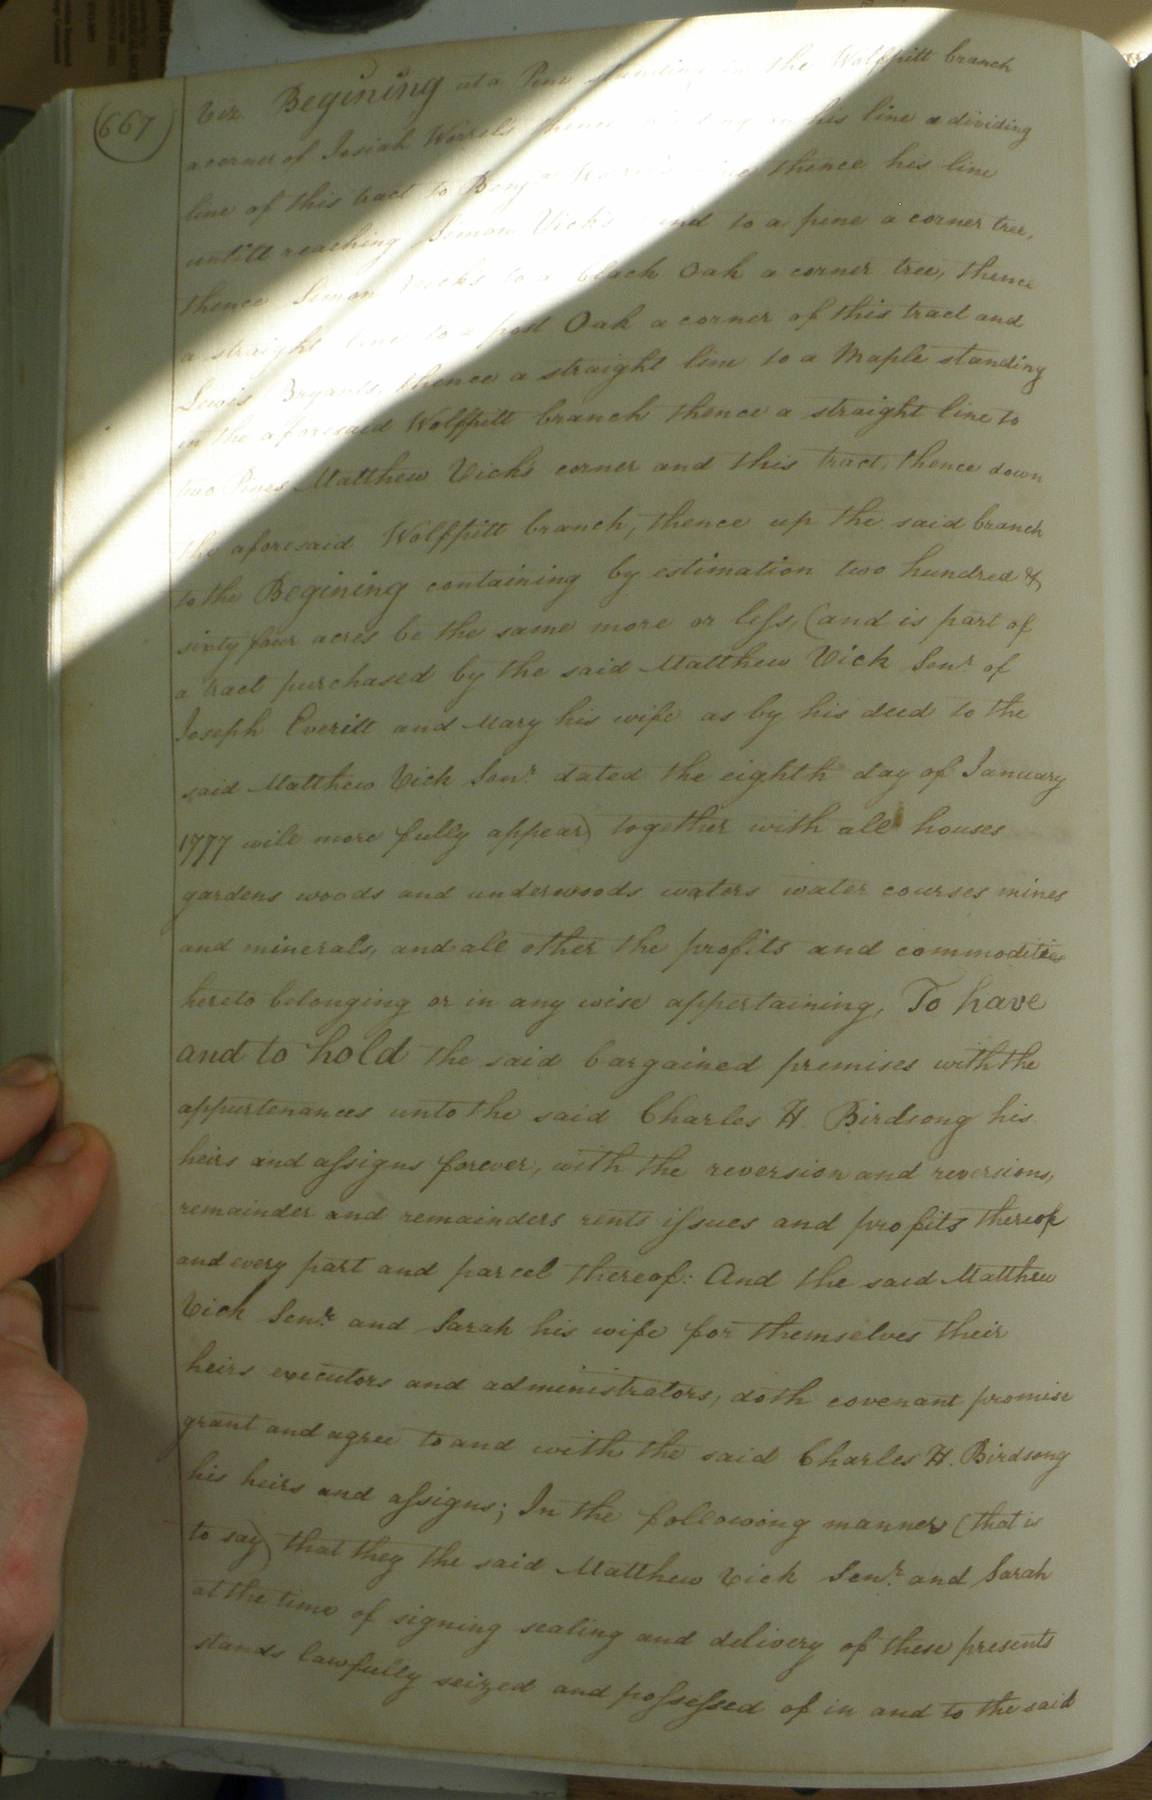 (667)
Viz. Begining at a Pine standing in the Wolfpitt branch
a corner of Josiah Worrels thence his line a dividing
line of this tract to thence his line
untill reaching Simon Vick's to a pine a corner tree,
thence Simon Vicks to a black Oak a corner tree, thence
a straight line to a post Oak a corner of this tract and
Lewis Bryants, thence a straight line to a Maple standing
in the aforesaid Wolfpitt branch thence a straight line to
two Pines Matthew Vicks corner and this tract, thence down
the aforesaid Wolfpitt branch, thence up the said branch
to the Begining containing by estimation two hundred &
sixty four acres be the same more or less, (and is part of
a tract purchased by the said Matthew Vick Senr. of
Joseph Everitt and Mary his wife as by his deed to the
said Matthew Vick Senr. dated the eighth day of January
1777 will more fully appear) together with all houses
gardens woods and underwoods waters water courses mines
and minerals, and all other the profits and commodities
hereto belonging or in any wise appertaining, To have
and to hold the said bargained premises with the
appurtenances unto the said Charles H. Birdsong his
heirs and assigns forever, with the reversion and reversions,
remainder and remainders rents issues and profits thereof
and every part and parcel thereof: And the said Matthew
Vick Senr. and Sarah his wife for themselves their
heirs executors and administrators, doth covenant promise
grant and agree to and with the said Charles H. Birdsong
his heirs and assigns; In the following manner (that is
to say) that they the said Matthew Vick Senr. and Sarah
at the time of signing sealing and delivery of these presents
stands lawfully seized and possessed of in and to the said